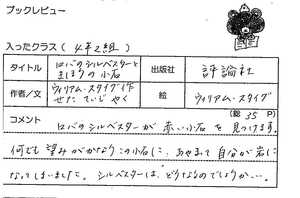 ブックレビュー
入ったクラス( 4年2組 )
タイトル
ロバのシルベスターと
まほうの小石
出版社
評論社
作者/文
ウィリアム・スタイグ作
せた ていじ やく
絵
ウィリアム・スタイグ
コメント
(総 35 P)
ロバのシルベスターが 赤い小石を 見つけます。
何でも 望みがかなうこの小石に、あやまって 自分が岩に
なってしまいました。 シルベスターは、どうなるのでしょうか…。